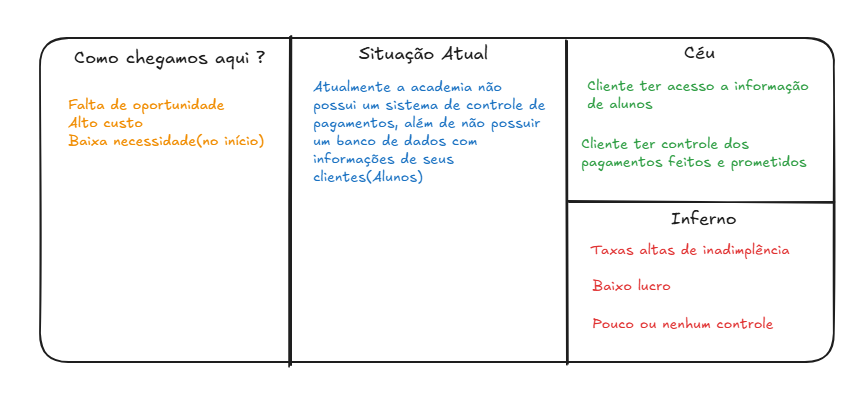 Como chegamos aqui ?
Falta de oportunidade
Alto custo
Baixa necessidade(no início)
Situação Atual
Atualmente a academia não
possui um sistema de controle de
pagamentos, além de não possuir
um banco de dados com
informações de seus
clientes(Alunos)
Céu
Cliente ter acesso a informação
de alunos
Cliente ter controle dos
pagamentos feitos e prometidos
Inferno
Taxas altas de inadimplência
Baixo lucro
Pouco ou nenhum controle